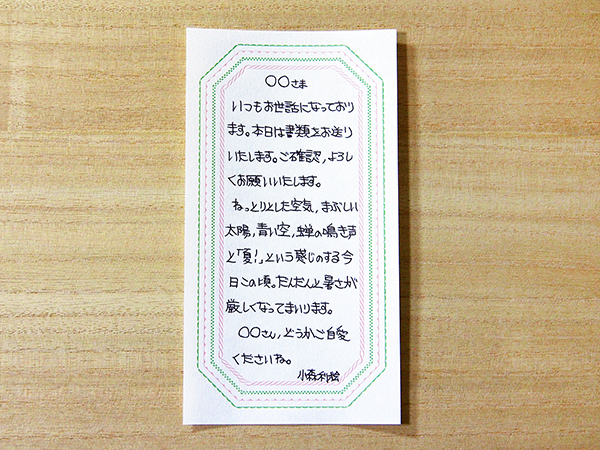 〇〇さま
いつもお世話になっており
ます。本日は書類をお送り
いたします。ご確認，よろし
くお願いいたします。
ねっとりとした空気，まぶしい
太陽，青い空，蝉の鳴き声
と「夏！」という感じのする今
日この頃。だんだんと暑さが
厳しくなってまいります。
〇〇さん，どうかご自愛
くださいね。
小森利絵